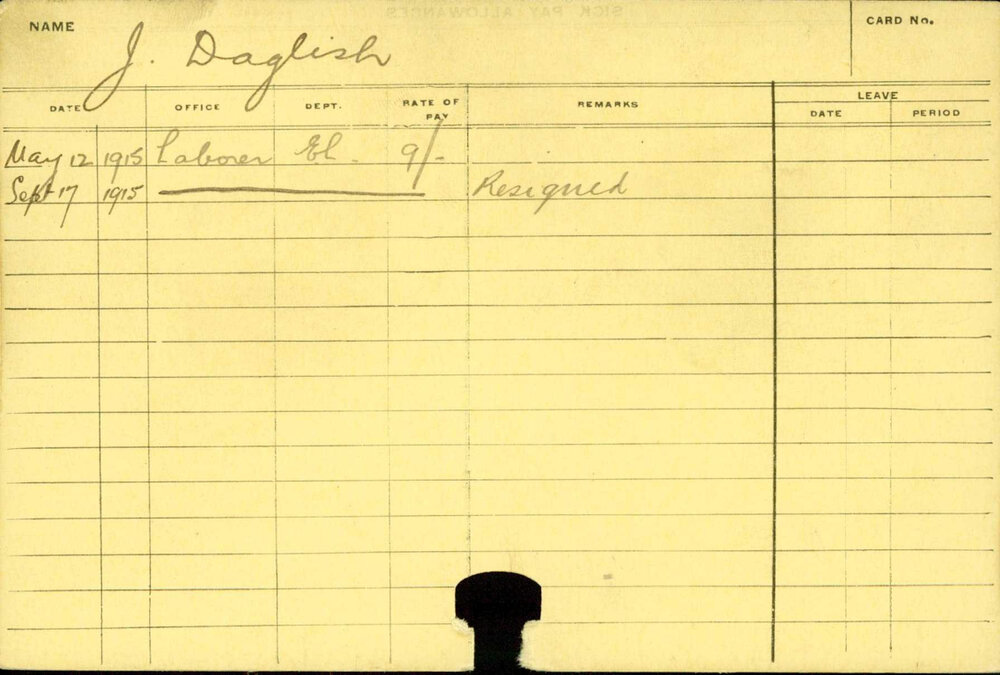 NAME J. Daglish CARD No.
DATE OFFICE DEPT. RATE OF PAY REMARKS LEAVE
DATE PERIOD
May 12 1915 Laborer El. 9/-
Sept 17 1915 Resigned